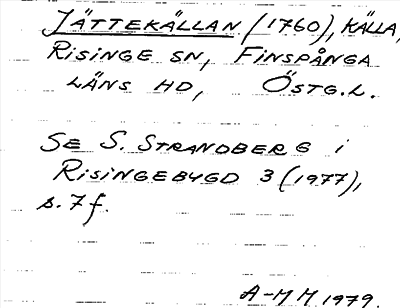 JÄTTEKÄLLAN (1760), KÄLLA,
RISINGE SN, FINSPÅNGA
LÄNS HD, ÖSTG.L.
SE S. STRANDBERG i
RISINGEBYGD 3 (1977),
s. 7 f.
A-MH 1979.